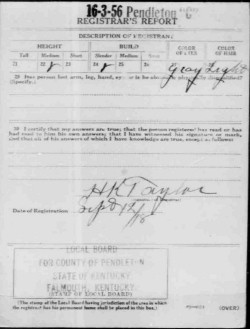 16-3-56 Pendleton
REGISTRAR'S REPORT
DESCRIPTION OF REGISTRANT
HEIGHT BUILD COLOR OF EYES COLOR OF HAIR
Tall Medium Short Slender Medium Stout
21 22 23 24 25 26 27 Gray 28 Light
29 Has person lost arm, leg, hand, eye
(Specify).
30 I certify that my answers are true; that the person registered has read or has
had read to him his own answers; that I have witnessed his signature or mark,
and that all of his answers of which I have knowledge are true, except as follows:
H K Taylor
Date of Registration Sept 12/18
LOCAL BOARD
FOR COUNTY OF PENDLETON
STATE OF KENTUCKY
FALMOUTH, KENTUCKY
(STAMP OF LOCAL BOARD)
(The stamp of the Local Board having jurisdiction of the area in which
the registrant has his permanent home shall be placed in this box.)
(OVER)